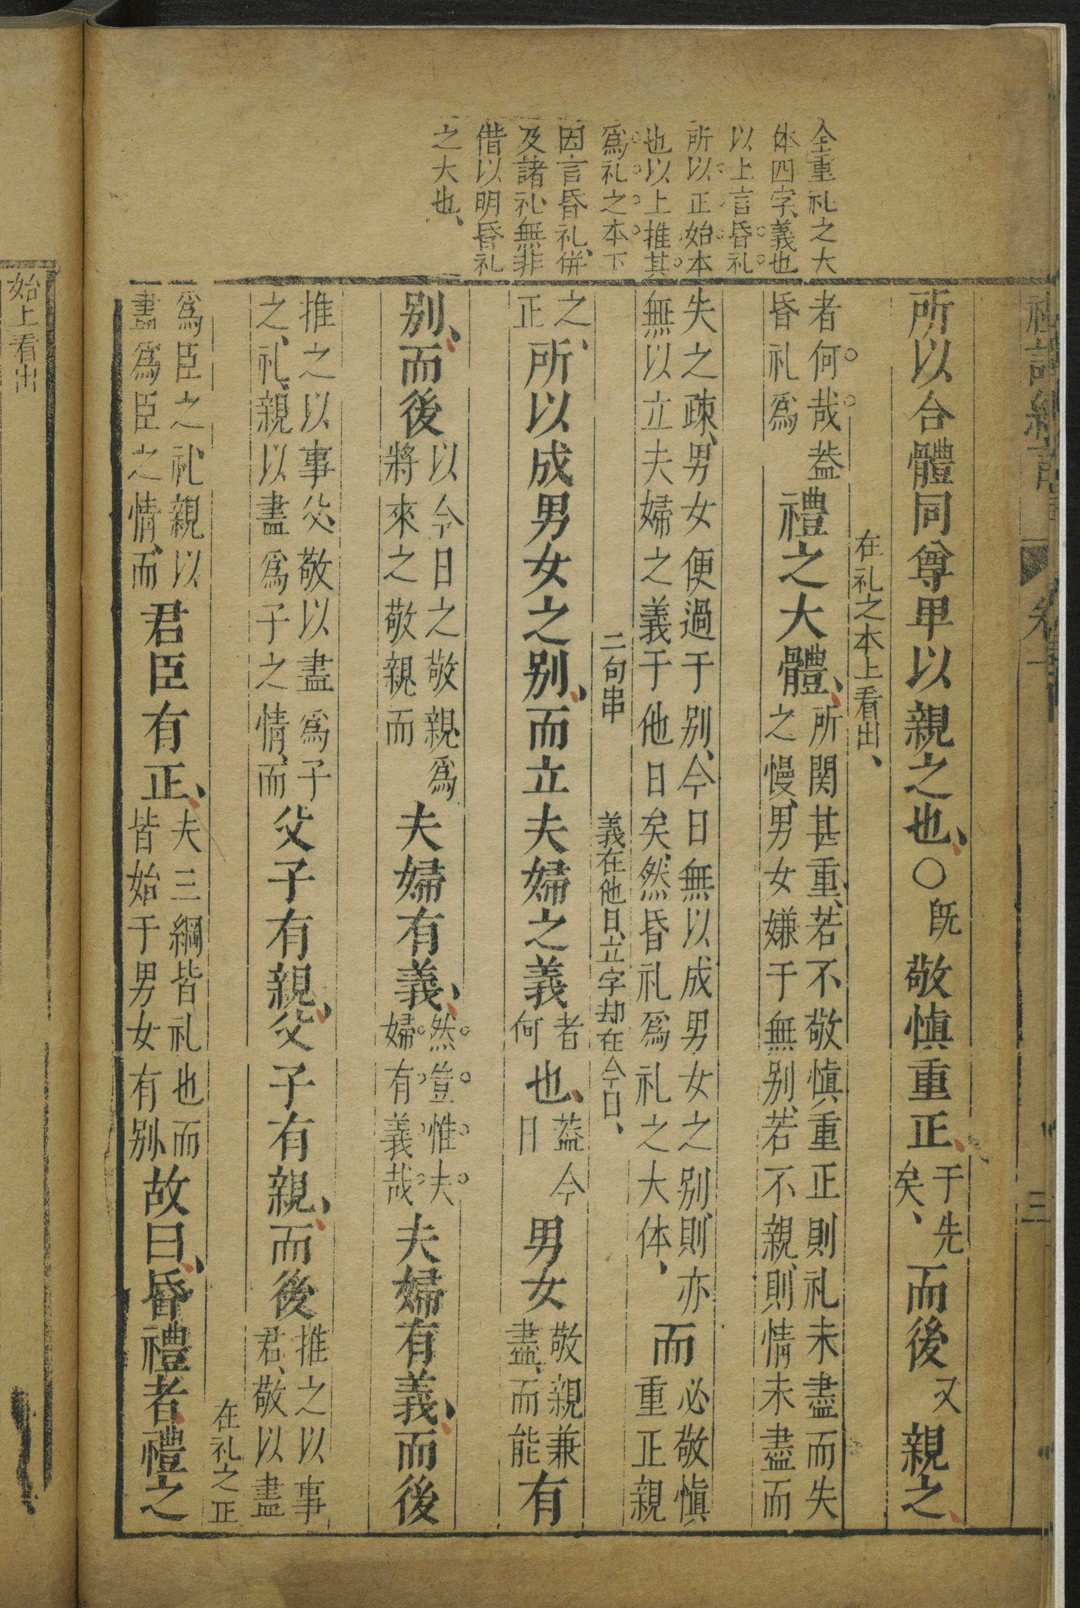 全重礼之大
体四字、義也
以上言昏礼
所以正始本
也以上推其
爲礼之本下
因言昏礼、併
及諸礼、無非
借以明昏礼
之大也、
三
所以合體同尊卑以親之也、○既敬愼重正、
于先
矣、
而後又親之、
在礼之本上看出、
者何哉葢
昏礼爲
禮之大體、
所関甚重、若不敬愼重正則礼未盡而失
之慢、男女嫌于無别、若不親、則情未盡而
失之疎、男女便過于别、今日無以成男女之别、則亦
無以立夫婦之義于他日矣、然昏礼爲礼之大体、
而
必敬愼
重正親
二句串
義在他日、立字却在今日、
之、
正
所以成男女之别、而立夫婦之義
者
何
也、
葢今
日
男女
敬親兼
盡、而能
有
别、而後
以今日之敬親、爲
將來之敬親而
夫婦有義、
然豈惟夫
婦有義哉
夫婦有義、而後
推之以事父、敬以盡爲子
之、礼、親以盡爲子之情、而
父子有親、父子有親、而後
推之以事
君、敬以盡
在礼之正
爲臣之礼、親以
盡爲臣之情、而
君臣有正、
夫三綱皆礼也而
皆始于男女有别
故曰、昏禮者禮之
始上看出